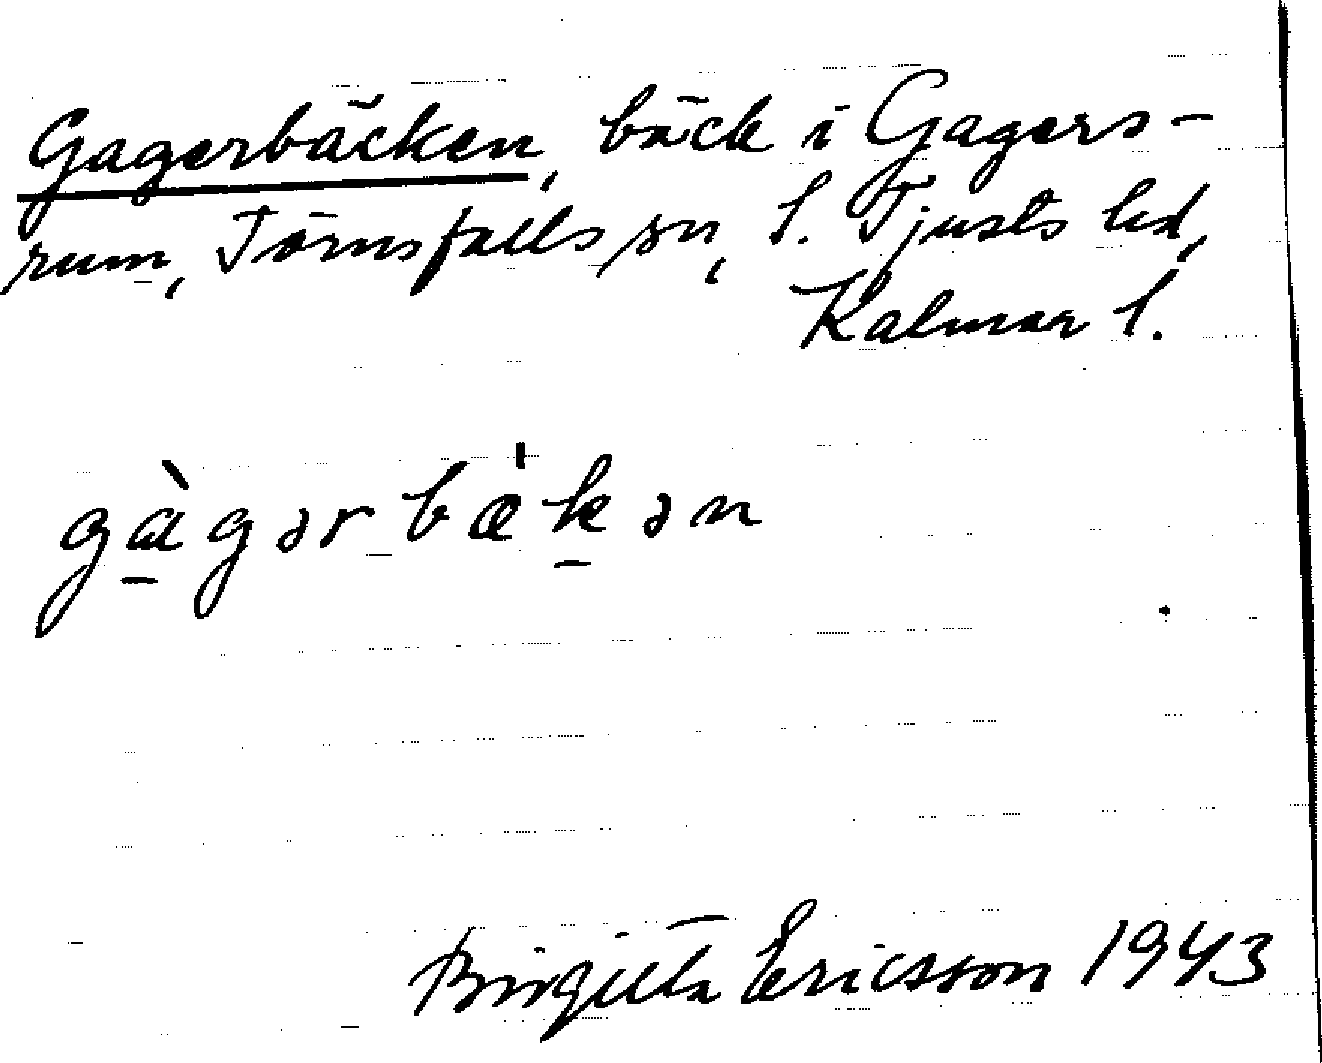 Gagerbäcken, bäck i Gagers-
rum, Törnsfalls sn, S. Tjusts hd,
Kalmar l.
gàgərbæ'kən
Birgitta Ericsson 1943